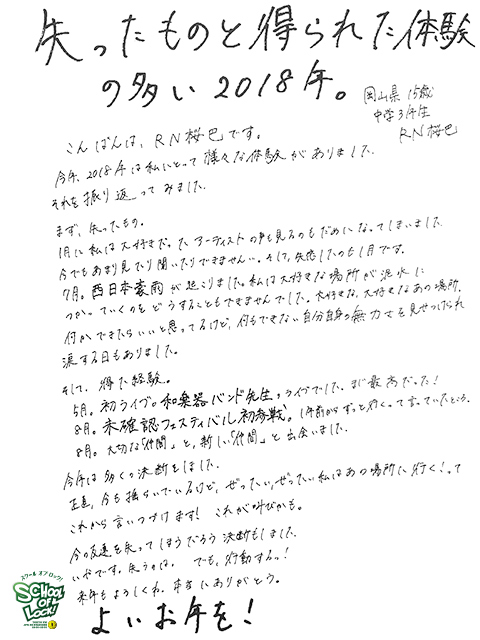 失ったものと得られた体験
の多い2018年。
岡山県 15歳
中学3年生
RN桜巴
こんばんは、RN桜巴です。
今年、2018年は私にとって様々な体験がありました。
それを振り返ってみました。
まず、失ったもの。
1月に私は大好きだったアーティストの声も見るのもだめになってしまいました
今でもあまり見たり聞いたりできません。そして、失恋したのも1月です。
7月。西日本豪雨が起こりました。私は大好きな場所が泥水に
つかっていくのをどうすることもできませんでした。大好きな、大好きなあの場所。
何かできたらいいと思ってるけど、何もできない自分自身の無力さを見せつけられ
涙する日もありました。
そして、得た経験。
5月。初ライブ。和楽器バンド先生のライブでした。まじ最高だった!
8月。未確認フェスティバル初参戦。1年前からずっと行くって言っていたところ。
8月。大切な「仲間」と、新しい「仲間」と出会いました。
今年は多くの決断をしました。
正直、今も揺らいでいるけど、ぜったい、ぜったい私はあの場所に行く!って
これから言いつづけます! これが叫びかも。
今の友達を失ってしまうだろう決断もしました。
いやです。失うのは。でも、行動するっ!
来年もよろしくね。本当にありがとう。
よいお年を!
スクール オブ ロック!
SCHOOL
OF
LOCK!